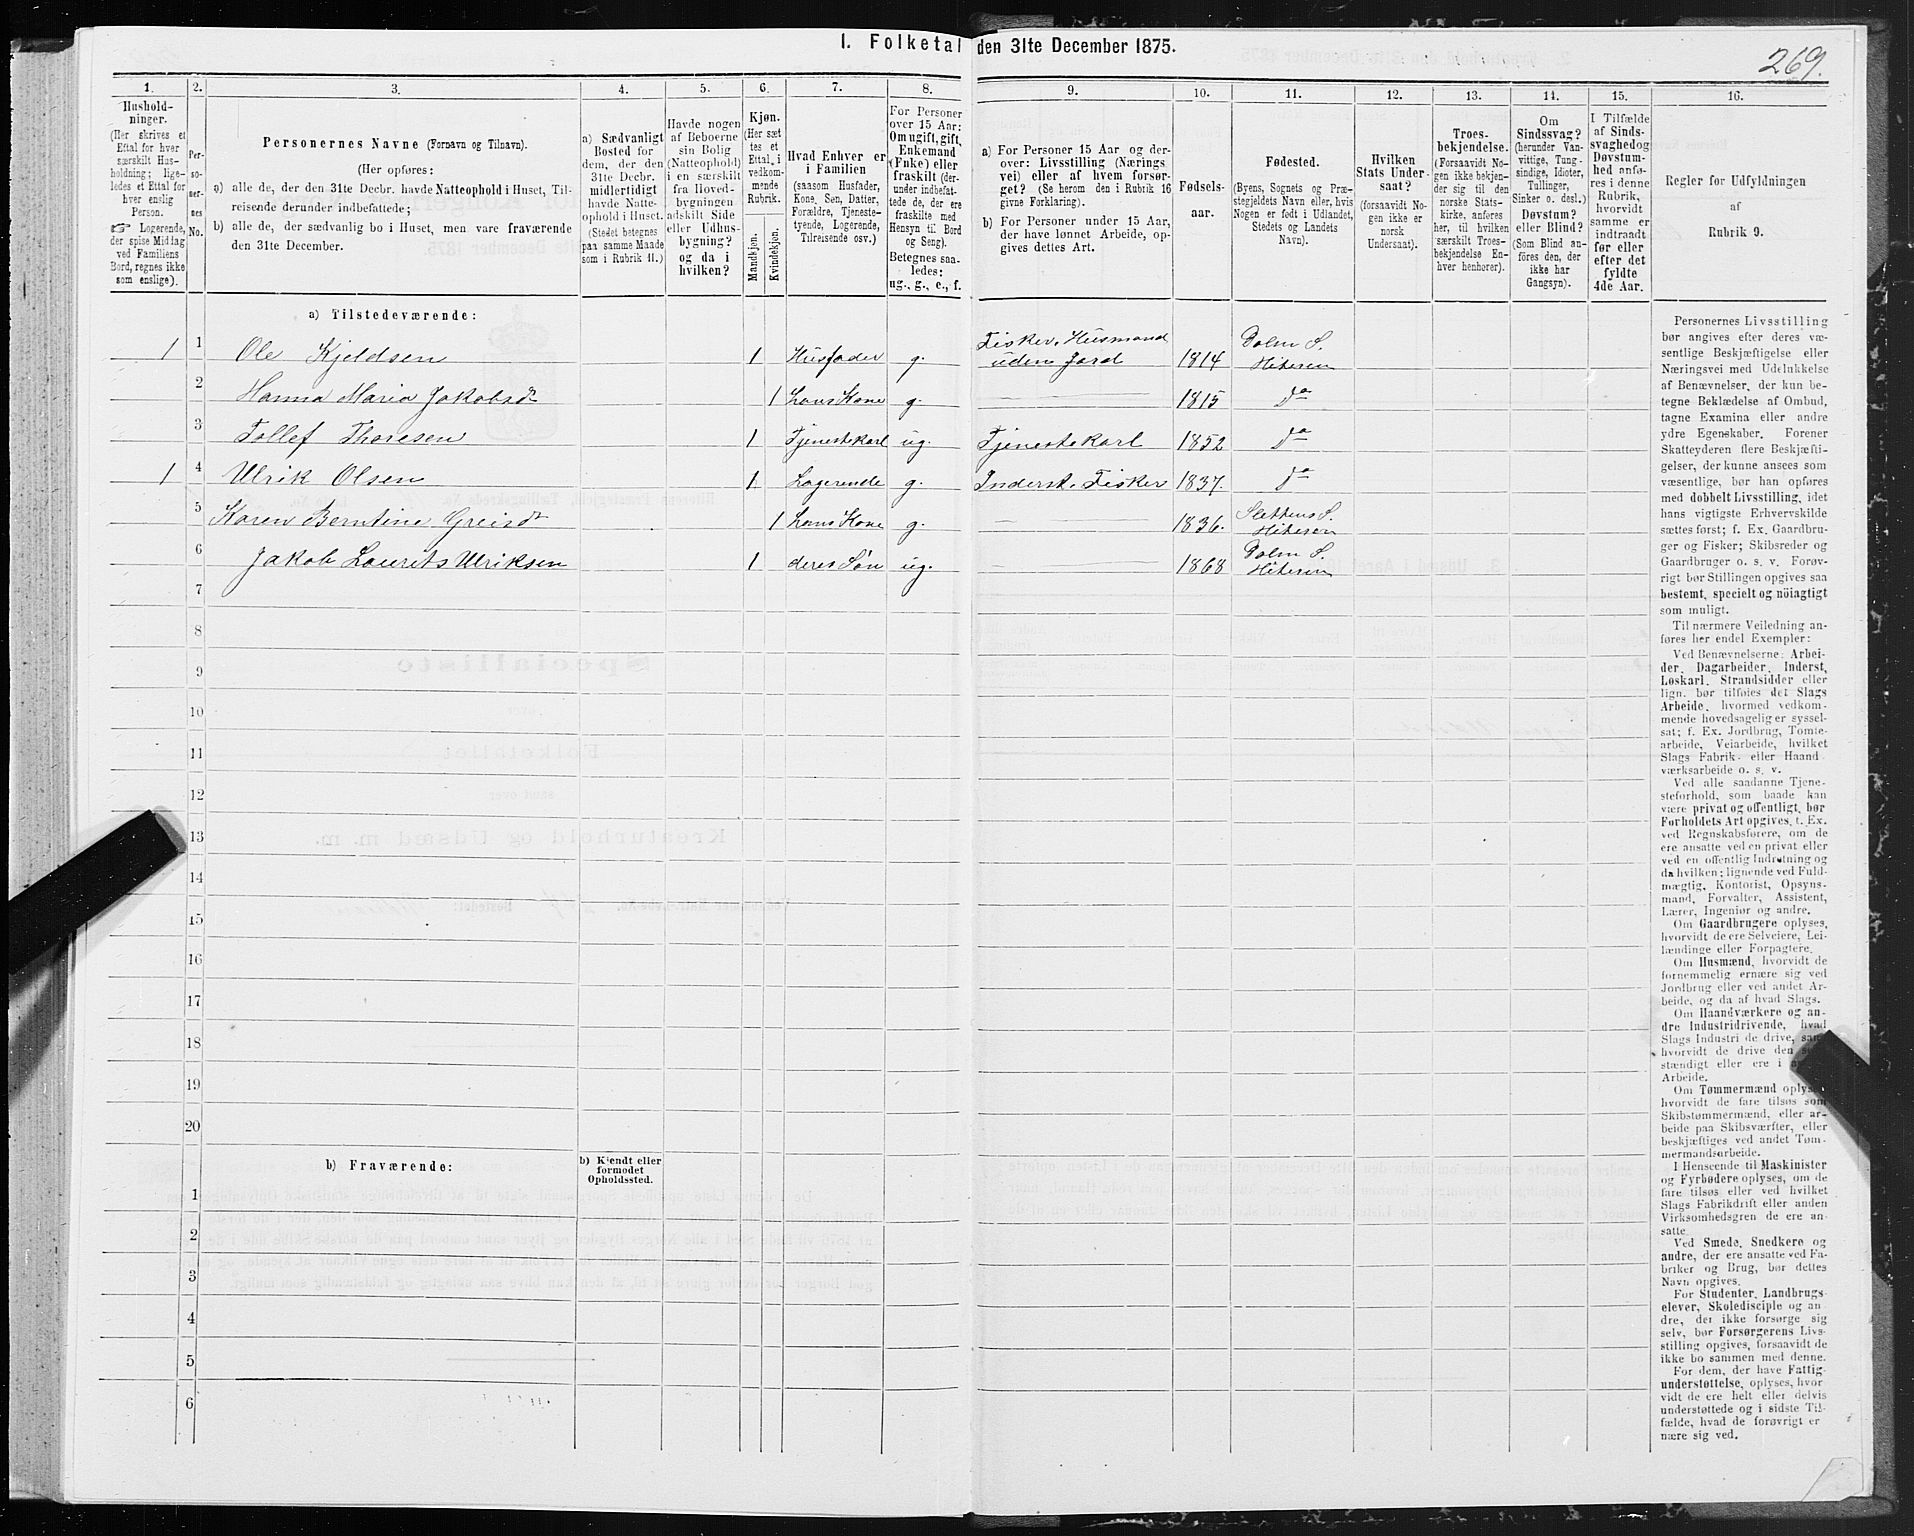 I. Folketal den 31te December 1875.
269.
1. 2. 3. 4. 5. 6. 7. 8. 9. 10. 11. 12. 13. 14. 15. 16.
Hushold-
ninger.
(Her skrives et
Ettal for hver
særskilt Hus-
holdning; lige-
ledes et Ettal for
hver enslig
Person.
☞ Logerende,
der spise Middag
ved Familiens
Bord, regnes ikke
som enslige).
Per-
so-
ner-
nes
No.
Personernes Navne (Fornavn og Tilnavn).
(Her opføres:
a) alle de, der den 31te Decbr. havde Natteophold i Huset, Til-
reisende derunder indbefattede;
b) alle de, der sædvanlig bo i Huset, men vare fraværende
den 31te December.
a) Sædvanligt
Bosted for
dem, der den
31te Decbr.
midlertidigt
havde Natte-
ophold i Huset.
(Stedet betegnes
paa samme Maade
som i Rubrik 11.)
Havde nogen
af Beboerne
sin Bolig
(Natteophold)
i en særskilt
fra Hoved-
bygningen
adskilt Side
eller Udhus-
bygning?
og da i
hvilken?
Kjøn.
(Her sæt
tes et
Ettal, i
vedkom-
mende
Rubrik.
Mandkjøn.
Kvindekjøn.
Hvad Enhver er
i Familien
(saasom Husfader,
Kone, Søn, Datter,
Forældre, Tjeneste-
tyende, Logerende,
Tilreisende osv.)
For Personer
over 15 Aar:
Om ugift, gift,
Enkemand
(Enke) eller
fraskilt (der-
under indbefat-
tede de, der ere
fraskilte med
Hensyn til Bord
og Seng).
Betegnes saa-
ledes:
ug., g., e., f.
a) For Personer 15 Aar og der-
over: Livsstilling (Nærings
vei) eller af hvem forsør-
get? (Se herom den i Rubrik 16
givne Forklaring).
b) For Personer under 15 Aar,
der have lønnet Arbeide, op-
gives dettes Art.
Fødsels-
aar.
Fødested.
(Byens, Sognets og Præ-
stegjeldets Navn eller, hvis
Nogen er født i Udlandet,
Stedets og Landets
Navn).
Hvilken
Stats Under-
saat?
(forsaavidt No-
gen ikke er
norsk
Undersaat).
Troes-
bekjendelse.
(Forsaavidt No-
gen ikke bekjen-
der sig til den
norske Stats-
kirke, anføres
her, til hvilken
særskilt Troes-
bekjendelse En-
hver henhører).
Om
Sindssvag?
(herunder Van-
vittige, Tung-
sindige, Idioter,
Tullinger,
Sinker o. desl.)
Døvstum?
eller Blind?
(Som Blind an-
føres den, der
ikke har
Gangsyn).
I Tilfælde
af Sinds-
svaghed og
Døvstum-
hed anfø-
res i denne
Rubrik,
hvorvidt
samme er
indtraadt
før eller
efter det
fyldte
4de Aar.
Regler for Udfyldningen
af
Rubrik 9.
a) Tilstedeværende:
1 1 Ole Kjeldsen 1 Husfader g. Fisker, Husmand uden Jord 1814 Dolm S. Hiteren
2 Hanna Maria Jakobsdr 1 hans Kone g. 1815 do
3 Tollef Thoresen 1 Tjenestekarl ug. Tjenestekarl 1852 do
1 4 Ulrik Olsen 1 Logerende g. Inderst. Fisker 1837. do
5 Karen Berntine Greisdr 1 hans Kone g. 1836. Slettens S. Hiteren
6 Jakob Laurits Ulriksen 1 deres Søn ug. 1868 Dolm S. Hiteren
7
8
9
10
11
12
13
14
15
16
17
18
19
20
b) Fraværende:
b) Kjendt eller
formodet
Opholdssted.
1
2
3
4
5
6
Personernes Livsstilling
bør angives efter deres væ-
sentlige Beskjæftigelse eller
Næringsvei med Udelukkelse
af Benævnelser, der kun be-
tegne Beklædelse af Ombud,
tagne Examina eller andre
ydre Egenskaber. Forener
Skatteyderen flere Beskjæfti-
gelser, der kunne ansees som
væsentlige, bør han opføres
med dobbelt Livsstilling, idet
hans vigtigste Erhvervskilde
sættes først; f. Ex. Gaardbru-
ger og Fisker; Skibsreder og
Gaardbruger o. s. v. Forøv-
rigt bør Stillingen opgives saa
bestemt, specielt og nöiagtigt
som muligt.
Til nærmere Veiledning an-
føres her endel Exempler:
Ved Benævnelserne: Arbei-
der, Dagarbeider, Inderst,
Løskarl, Strandsidder eller
lign. bør tilføies det Slags
Arbeide, hvormed vedkom-
mende hovedsagelig er syssel-
sat; f. Ex. Jordbrug, Tomte-
arbeide, Veiarbeide, hvilket
Slags Fabrik- eller Haand
værksarbeide o. s. v.
Ved alle saadanne Tjene-
steforhold, som baade kan
være privat og offentligt, bør
Forholdets Art opgives, t. Ex.
ved Regnskabsførere, om de
ere ansatte ved en privat eller
ved en offentlig Indretning og
da hvilken; lignende ved Fuld-
mægtig, Kontorist, Opsyns-
mand, Forvalter, Assistent,
Lærer, Ingeniør og andre.
Om Gaardbrugere oplyses,
hvorvidt de ere Selveiere, Lei-
lændinge eller Forpagtere.
Om Husmænd, hvorvidt de
fornemmelig ernære sig ved
Jordbrug eller ved andet Ar-
beide, og da af hvad Slags.
Om Haandværkere og an-
dre Industridrivende, hvad
Slags Industri de drive, sam
hvorvidt de drive den
stændigt eller ere i
Arbeide.
Om Tømmermænd oplyses
hvorvidt de fare tilsøs som
Skibstømmermænd, eller ar-
beide paa Skibsværfter, eller
beskjæftiges ved andet Tøm-
mermandsarbeide.
I Henseende til Maskinister
og Fyrbødere oplyses, om de
fare tilsøs eller ved hvilket
Slags Fabrikdrift eller anden
Virksomhedsgren de ere an-
satte.
Ved Smede, Snedkere og
andre, der ere ansatte ved Fa-
briker og Brug, bør dettes
Navn opgives.
For Studenter, Landbrugs-
elever, Skoledisciple og an-
dre, der ikke forsørge sig
selv, bør Forsørgerens Livs-
stilling opgives, forsaavidt de
ikke bo sammen med denne.
For dem, der have Fattig-
understøttelse, oplyses, hvor
vidt de ere helt eller delvis
understøttede og i sidste Til-
fælde, hvad de forøvrigt er
nære sig ved.